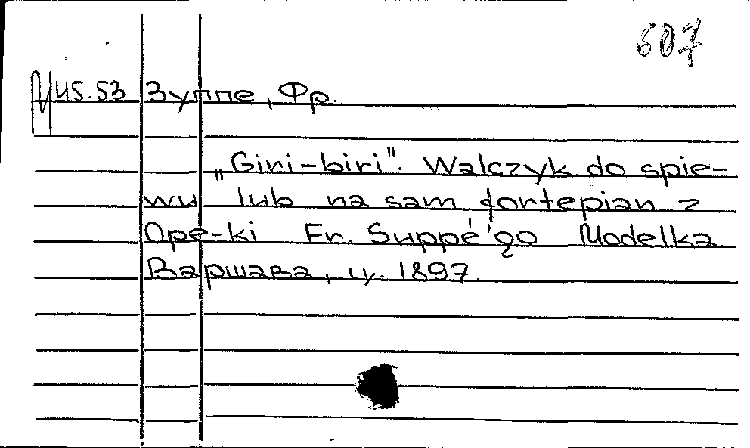 607
45.53 Зуппе, Фр.
„Giri-biri". Walczyk do spie-
wu lub na sam fortepian z
Ope-ki Fr. Suppé'go Modelka
Варшава, ц. 1897.